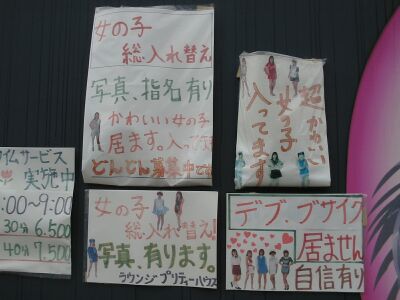 女の子
総入れ替え
写真、指名有り
かわいい女の子
居ます。入って
どんどん募集中です
超かわいい
女の子
入ってます
タイムサービス
実施中
:00~9:00
30分 6.500
40分 7.500
女の子
総入れ替え!
写真、有ります。
ラウンジ・プリティーハウス
デブ、ブサイク
居ません
自信有り